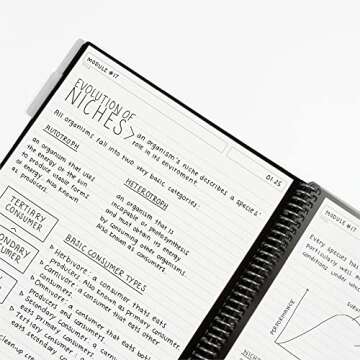 MODULE #17
01.25
EVOLUTION OF
NICHES >
an organism's niche describes a species'
role in its environment.
All organisms fall into two very basic categories:
AUTOTROPH
an organism that uses
the energy of the sun
to produce usable forms
of energy. Also known
as producers.
HETEROTROPH
an organism that is
incapable of photosynthesis
and must obtain its energy
by consuming other organisms.
Also known as consumers.
TERTIARY
CONSUMER
CONDARY
ONSUMER
BASIC CONSUMER TYPES
Herbivore: a consumer that eats
producers. Also known as primary consumers.
Carnivore: a consumer that eats other
consumers.
Omnivore: a consumer that eats both
producers and consumers.
Secondary consumers:
eats primary consumers.
Tertiary consumer:
eats secondary
MODULE #17
Every species ha
particularly well
conditions under which
PERFORMANCE